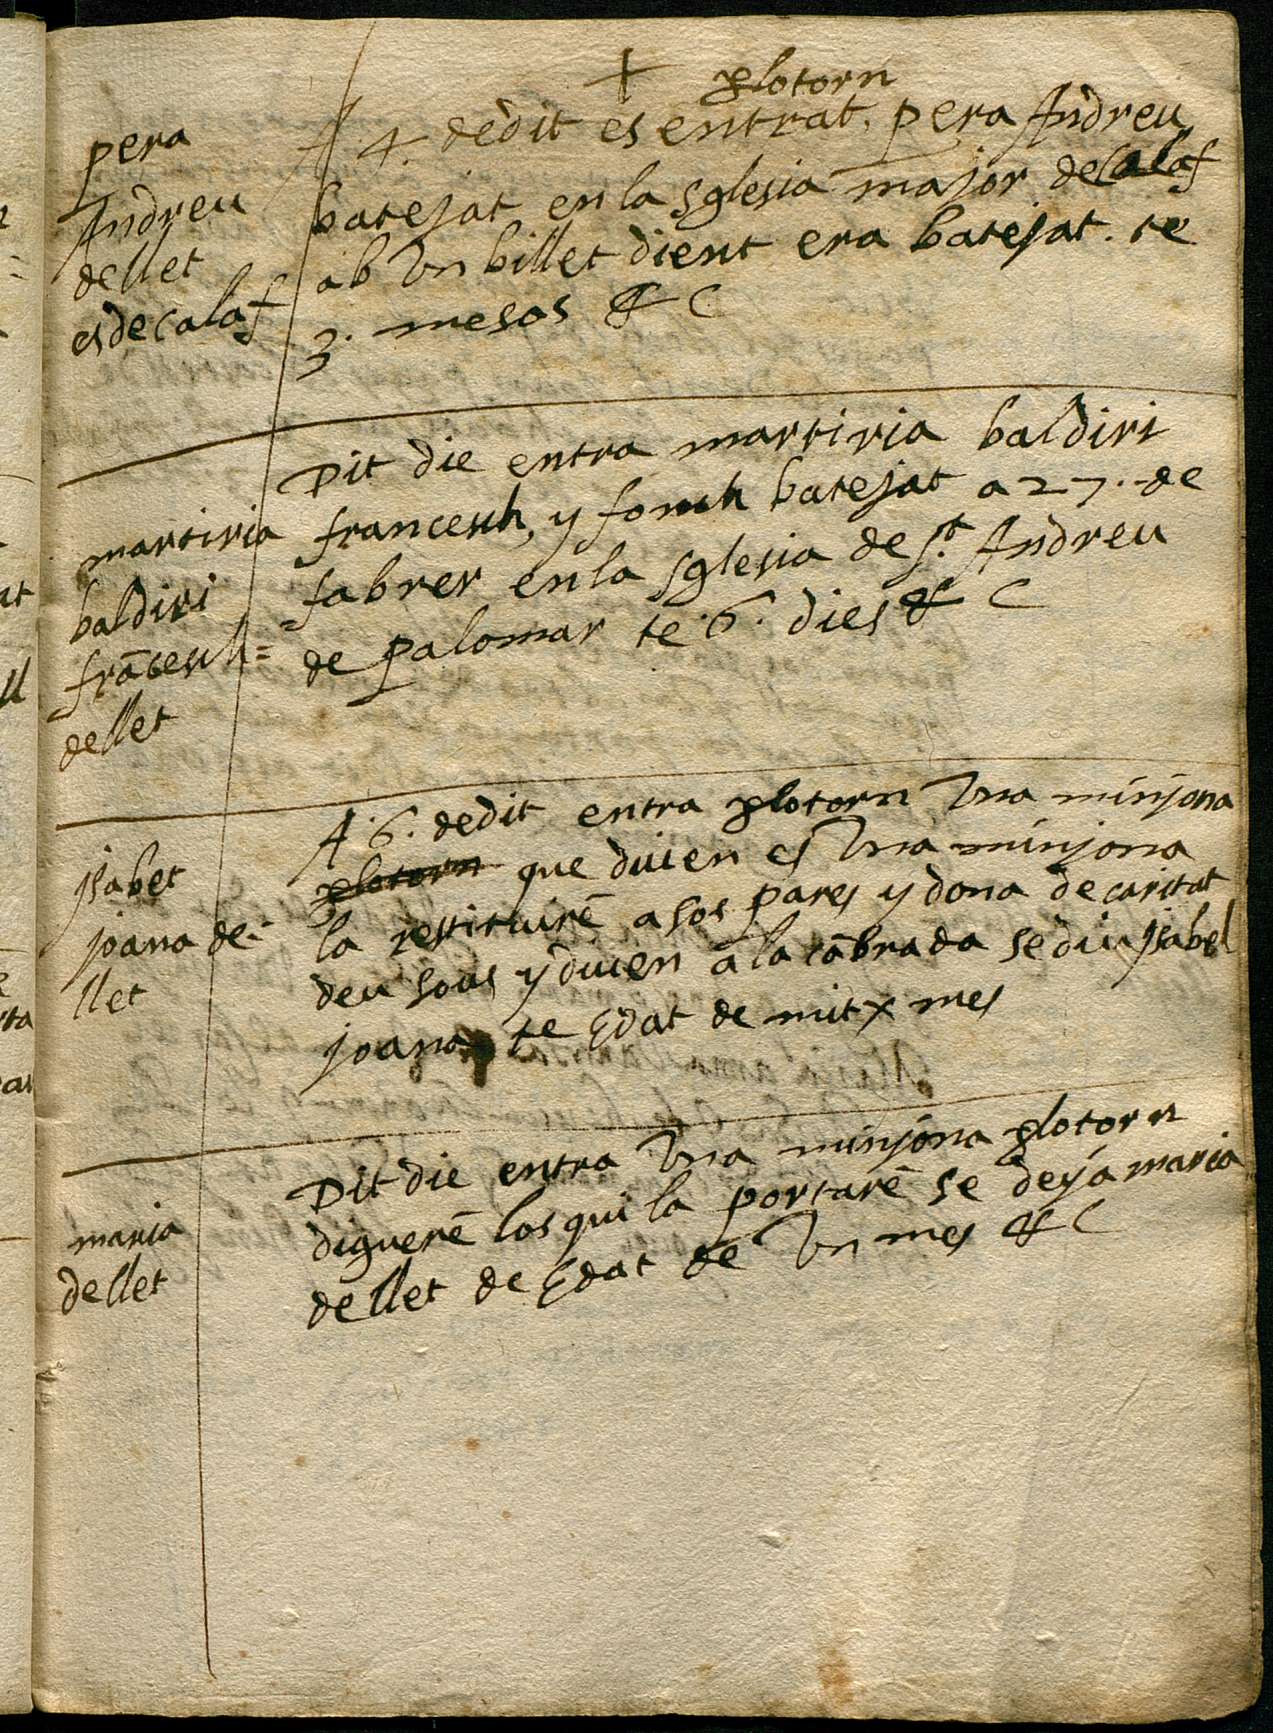 +
plotorn
pera
Andreu
dellet
es de Calaf
A 4. dedit es entrat. pera Andreu
batejat en la sglesia major de Calaf
ab un billet dient era batejat. te
3. mesos & C
martiria
baldiri
frācesch=
dellet
Dit die entra martiria baldiri
francesch, y fonch batejat a 27. de
fabrer en la sglesia de St. Andreu
de palomar te 6. dies & C
jsabet
joana de-
llet
A 6. dedit entra plotorn una minjona
plotorn que duien es una minjona
la restituirē a sos pares y dona de caritat
deu sous y duien a la cābrada se diu jsabel
joana te Edat de mitx mes
maria
dellet
Dit die entra una minjona plotorn
diguerē los qui la portarē se deya maria
dellet de Edat de un mes & C